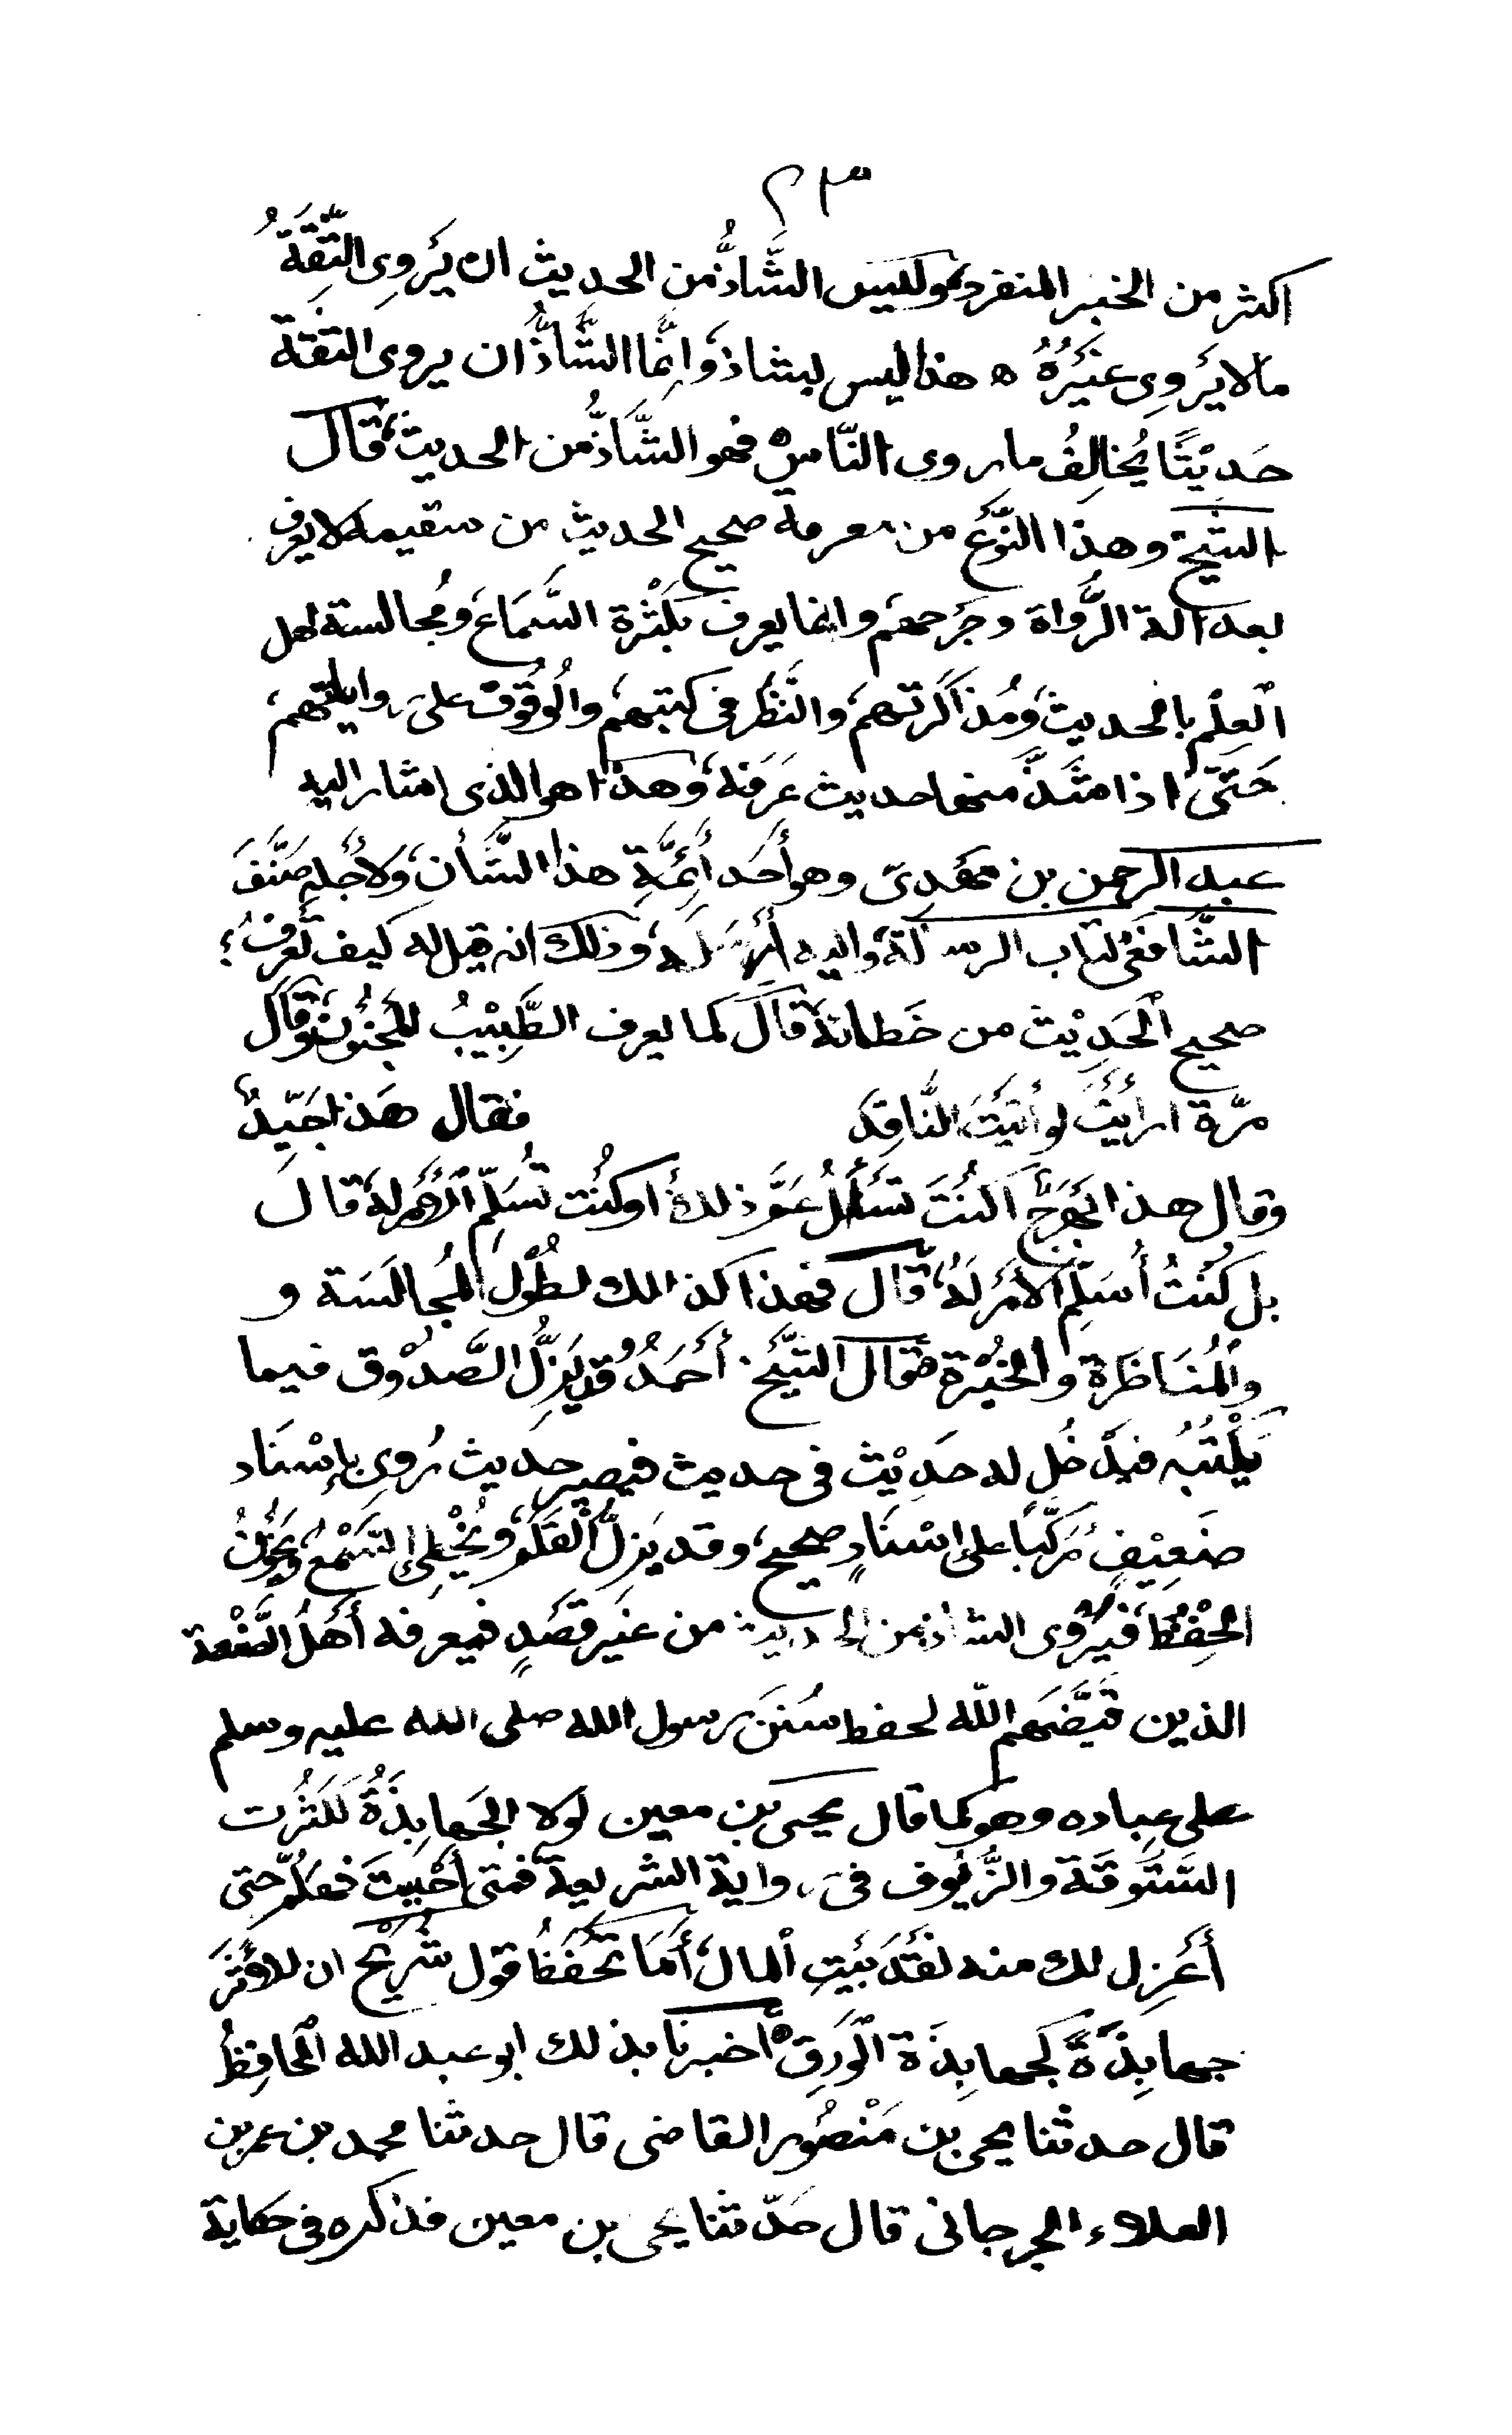 ٢٣
اكثر من الخبر المنفرد، وليس الشَّاذُّ من الحديث ان يَرْوِى الثِّقَةُ
مالا يَرْوِى غَيْرُهُ ه هذا ليس بشاذ، وَاِنَّما الشَّاذُّ ان يروى الثقة
حَدِيْثًا يُخالِفُ ما روى النَّاسُ فهو الشَّاذُّ من الحديث، قال
الشَّيْخ وهذا النَّوْع من معرفة صحيح الحديث من سقيمه لا يعرف
بعدالة الرُّواة وجَرْحهم وانما يعرف بكَثْرة السَّمَاع، ومُجالسة اهل
الْعِلْم بالحديث، ومُذاكَرتهم، والنَّظْر فى كتبهم، والْوُقُوْف على روايتهم،
حَتّى اذا شَذَّ منها حديث عَرَفَه، وهذا هو الذى اشار اليه
عبد الرحمن بن مهْدِىّ وهو أَحَد أَئِمَّةِ هذا الشَّأن، وَلِأَجْلِهِ صَنَّفَ
الشَّافعى كتاب الرسالة، واليه أَرْسَلَه، وذلك انه قيل له كيف تَعْرِفُ؛
صحيح الْحَدِيْث من خَطائه، قال كما يعرف الطَّبِيْبُ المَجْنُون، وقال
مرّة ارأَيْتَ لو أَتَيْتَ النَّاقِدَ فقال هَذا جَيِّدٌ
وقال هذا بَهْرَجٌ اكُنْتَ تَسْأَلُ عَمَّ ذلك، او كُنْت تُسَلِّم الْأَمْر له، قال
بل كُنْتُ أُسَلِّم الأمْرَ لَهُ، قال فهذا كذالك لطُوْل المُجالَسَة و
والْمُنَاظَرة والخُبْرة، فقال الشَّيْخ. أحْمَدُ وقد يَزِلُّ الصَّدُوْق فيما
يَكْتُبُه فيَدْخُل له حَدِيْث فى حديث فيصير حديث رُوِى بإسْنَاد
ضَعِيْفٍ مُرَكَّبًا على اسْنَادٍ صحيح، وقد يَزِلُّ الْقَلَم، ويُخْطِئُ السَّمْعُ، ويَخُوْنُ
الْحِفْظُ، فيَرْوى الشاذ من الحديث من غَيْر قَصْدٍ فيعرفه أَهْلُ الصَّنْعة
الذين قَيَّضَهم اللّه لحفظ سُنَنَ رسول الله صلى الله عليه وسلم
على عِباده وهو كما قال يحيى بن معين لولا الجَهابِذَةُ لَكَثُرَت
السَّتُّوقَة والزُّيُوف فى رواية الشريعة، فمتى أَحْبَبْتَ فَهَلُمّ حتى
أَعْزِل لك منه نَقْدَ بَيْتِ الْمال، أَمَا تَحْفَظُ قول شُرَيْح ان للأثَرِ
جهابِذَةً كجهابِذَة الْوَرِق ه أخبرنا بذلك ابو عبد الله الْحافِظُ
قال حدثنا يحيى بن مَنْصُور القاضى قال حدثنا محمد بن عمر بن
العلاء الجرجانى قال حَدّثنا يحيى بن معين فذكره فى حكاية